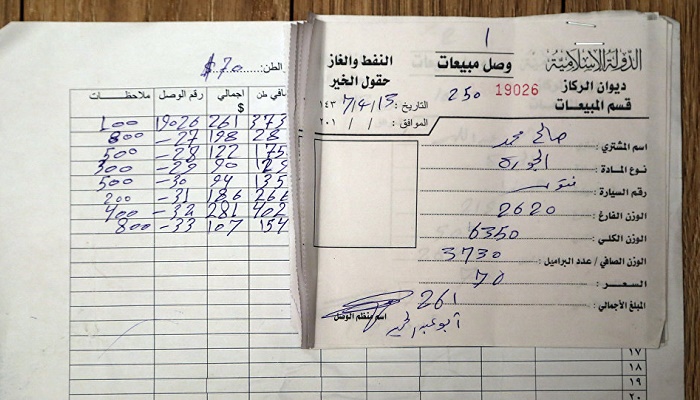 ١
الدولة الإسلامية
ديوان الركاز
قسم المبيعات
وصل مبيعات
250 19026
النفط والغاز
حقول الخير
التاريخ : 7/4/15 ١٤٣
الموافق : / / ٢٠١
اسم المشتري : صالح محمد
نوع المادة :
رقم السيارة :
الوزن الفارغ : 2620
الوزن الكلي : 6350
الوزن الصافي / عدد البراميل : 3730
السعر : 70
المبلغ الأجمالي : 261
اسم منظم الوصل
الطن: $ 70
صافي طن اجمالي $ رقم الوصل ملاحظات
373 261 19026 100
28 198 -27 800
175 122 -28 500
129 90 -29 300
135 94 -30 500
266 186 -31 200
402 281 -32 400
154 107 -33 800
١٧
١٨
١٩
٢٠